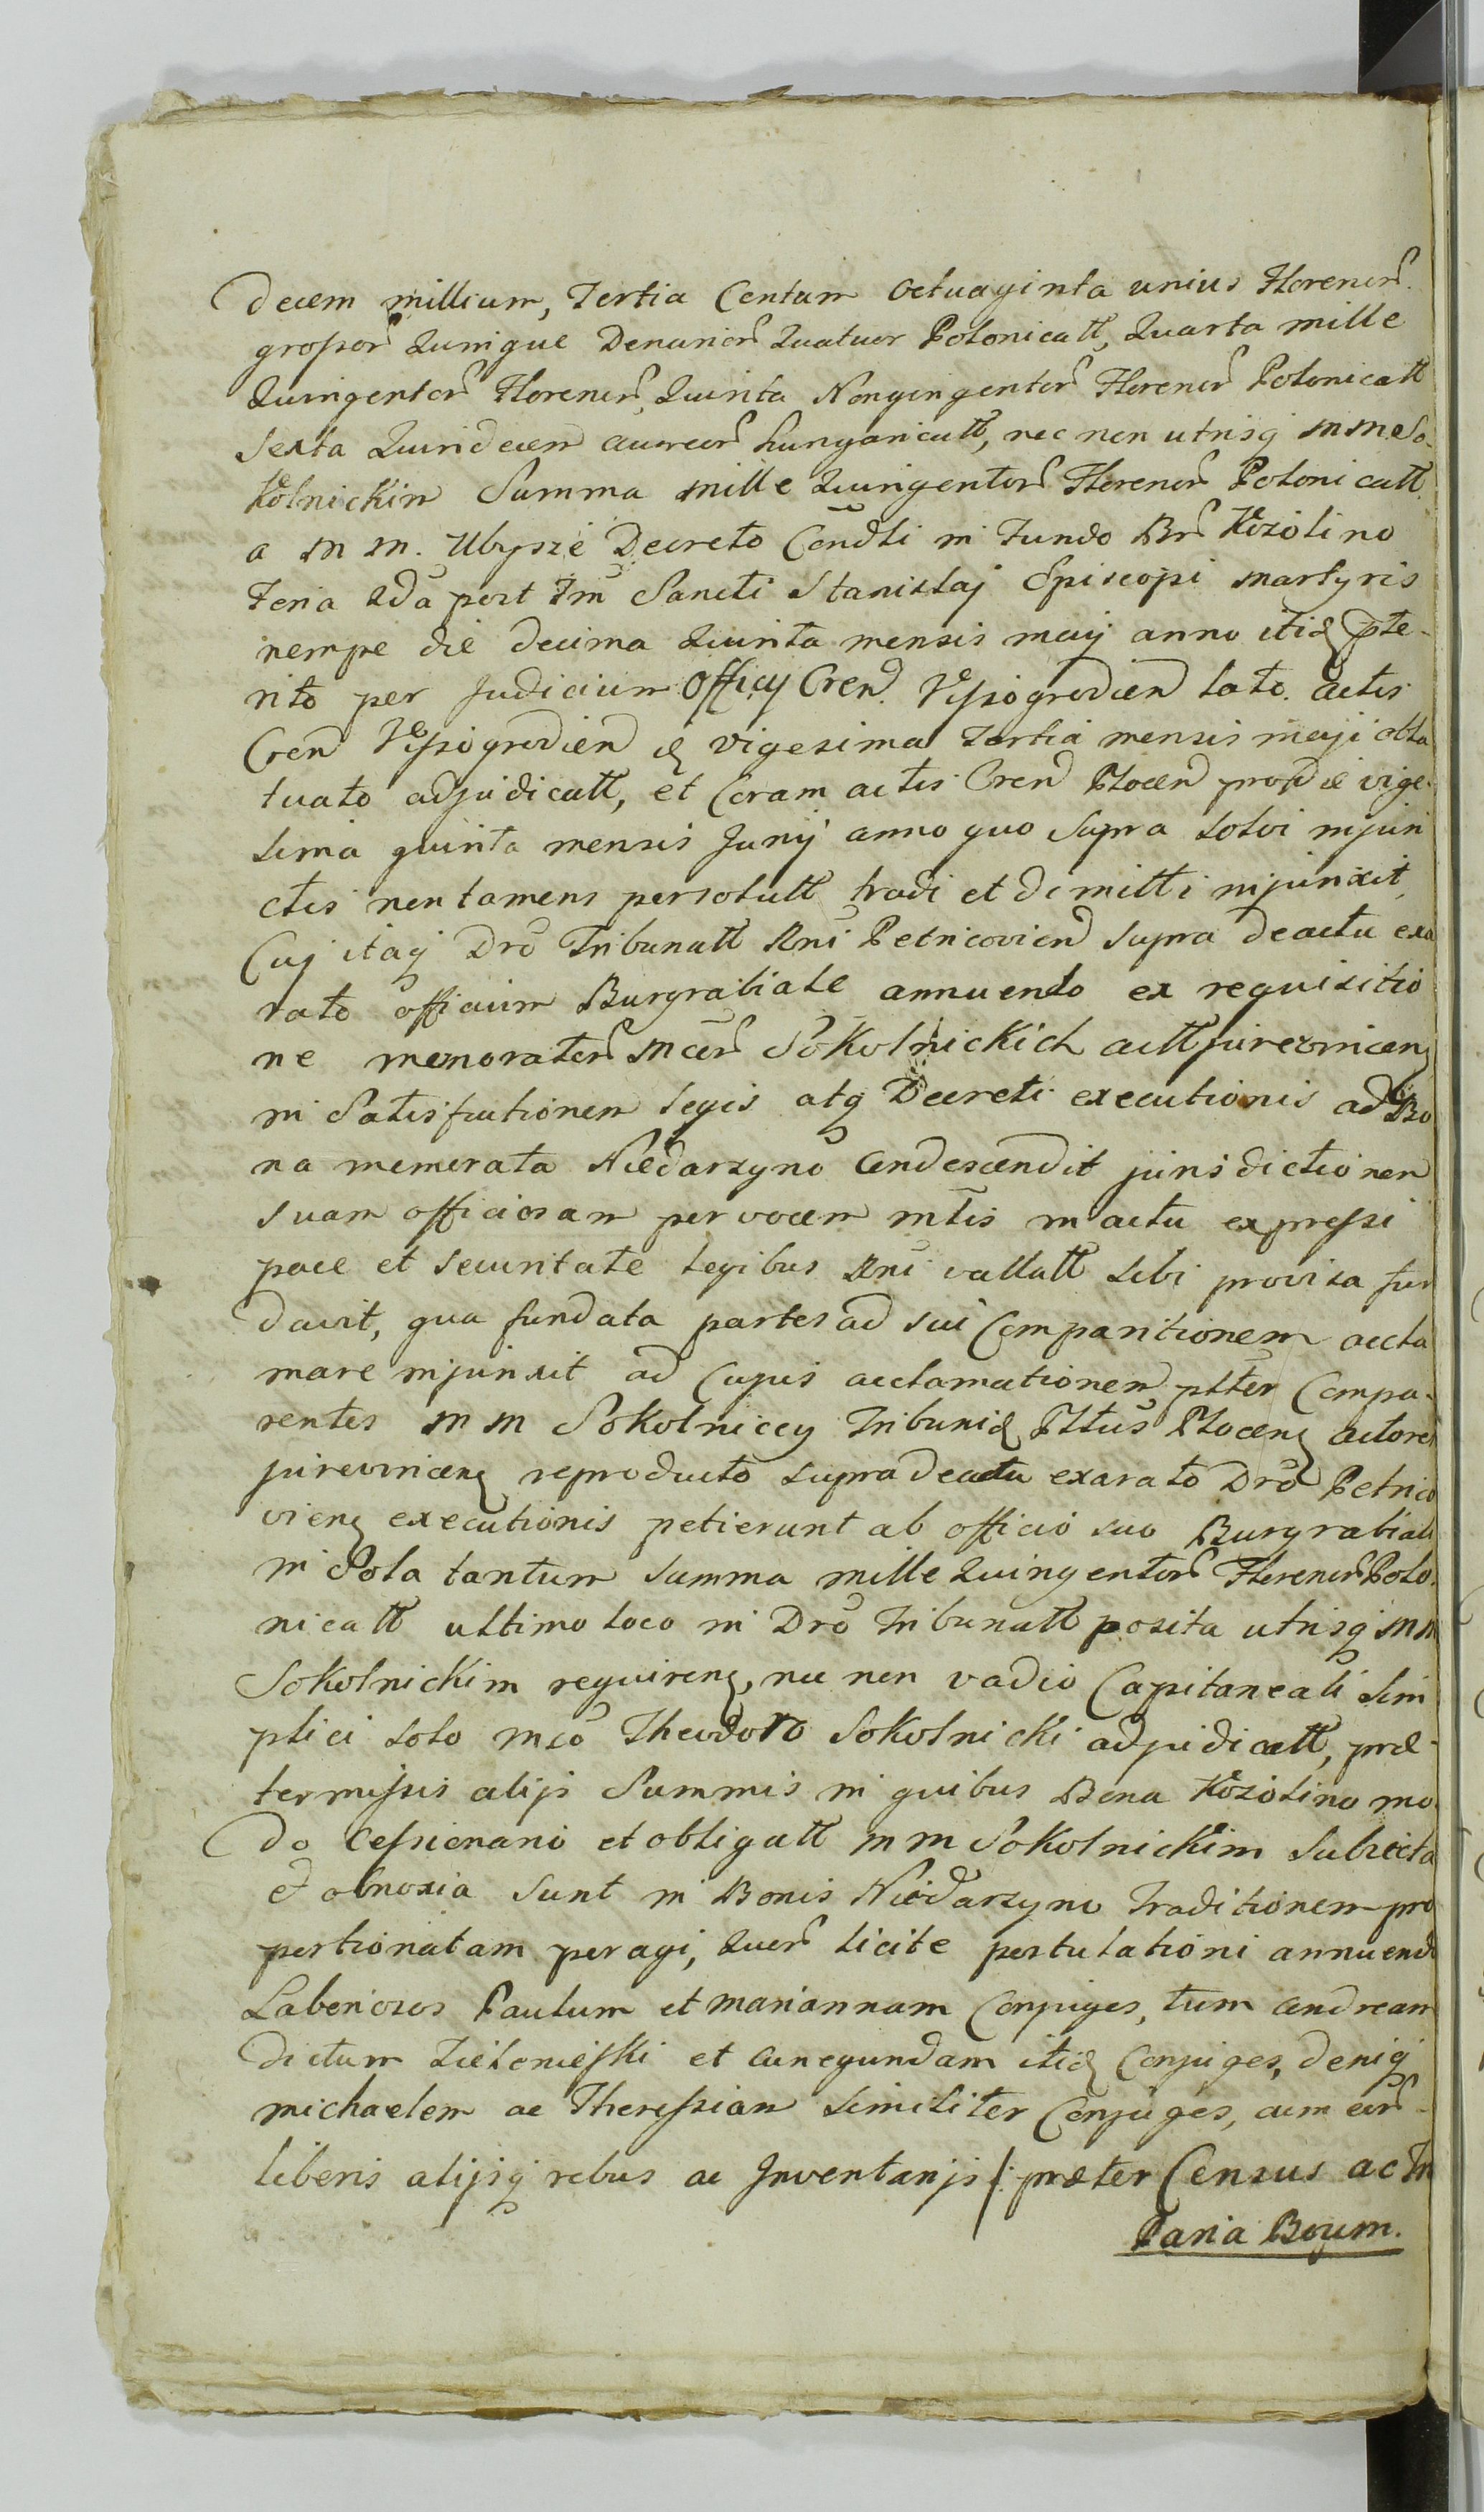 Decem millium, Tertia Centum Octuaginta unius Florenor.
grossor Quinque Denarior Quatuor Polonicall, Quarta mille
Quingentor Florenor, Quinta Nongingentor Florenor Polonicall
Sexta Quindecem aureor hungaricall, nec non utrisq MM So-
kolnickim Summa mille Quingentor Florenor Polonicall
a M M. Ubysze Decreto Condli in Fundo Br Kozolino
Feria 2da post Fm Sancti Stanislaj Episcopi Martyris
nempe die decima Quinta mensis maij anno itid pte-
rito per Judicium Officij Cren. Wyssogrodien lato. actis
Cren Wyssogrodien d vigesima Tertia mensis maji obla
tuato adjudicall, et Coram actis Cren Plocen pro die vige-
sima quinta mensis Junij anno quo supra solvi injun
ctis non tamens persolutt tradi et dimitti injunxit
Cuj itaq Dro Tribunall Rni Petricovien supra de actu exa
rato officium Burgrabiale annuendo ex requisitio
ne memorator Mcor Sokolnickich actt jurevincen
in Satisfactionem legis atq Decreti executionis ad Bo
na memorata Niedarzyno Condescendit jurisdictionem
suam officiosam per vocem mtis in actu expressi
pace et securitate legibus Rni vallatt sibi provisa fun
davit, qua fundata partes ad sui Comparitionem accla
mare injunxit ad Cujus acclamationem ptter Compa-
rentes M M Sokolnicey Tribunid Pttus Plocen actores
jurevincen reproducto supra de actu exarato Dro Petrico
vien executionis petierunt ab officio suo Burgrabiali
in Sola tantum summa mille Quingentor Florenor Polo.
nicall ultimo loco in Dro Tribunall posita utrisq MM
Sokolnickim requiren, nec non vadio Capitaneali Sim
plici solo Mco Theodoro Sokolnicki adjudicall, præ-
termissis alijs Summis in quibus Bona Kozolino mo
do Cessionario et obligatt M M Sokolnickim Subjecta
& obnoxia sunt in Bonis Niedarzyno Traditionem pro
portionatam peragi, Quor licite postulationi annuendo
Laboriosos Paulum et Mariannam Conjuges, tum Andream
dictum Zielonieski et Cunegundam itid Conjuges, deniq
Michaelem ac Theressiam Similiter Conjuges, cum eor
liberis alijsq rebus ac Inventarijs /: præter Census ac Tri
Paria Boum.